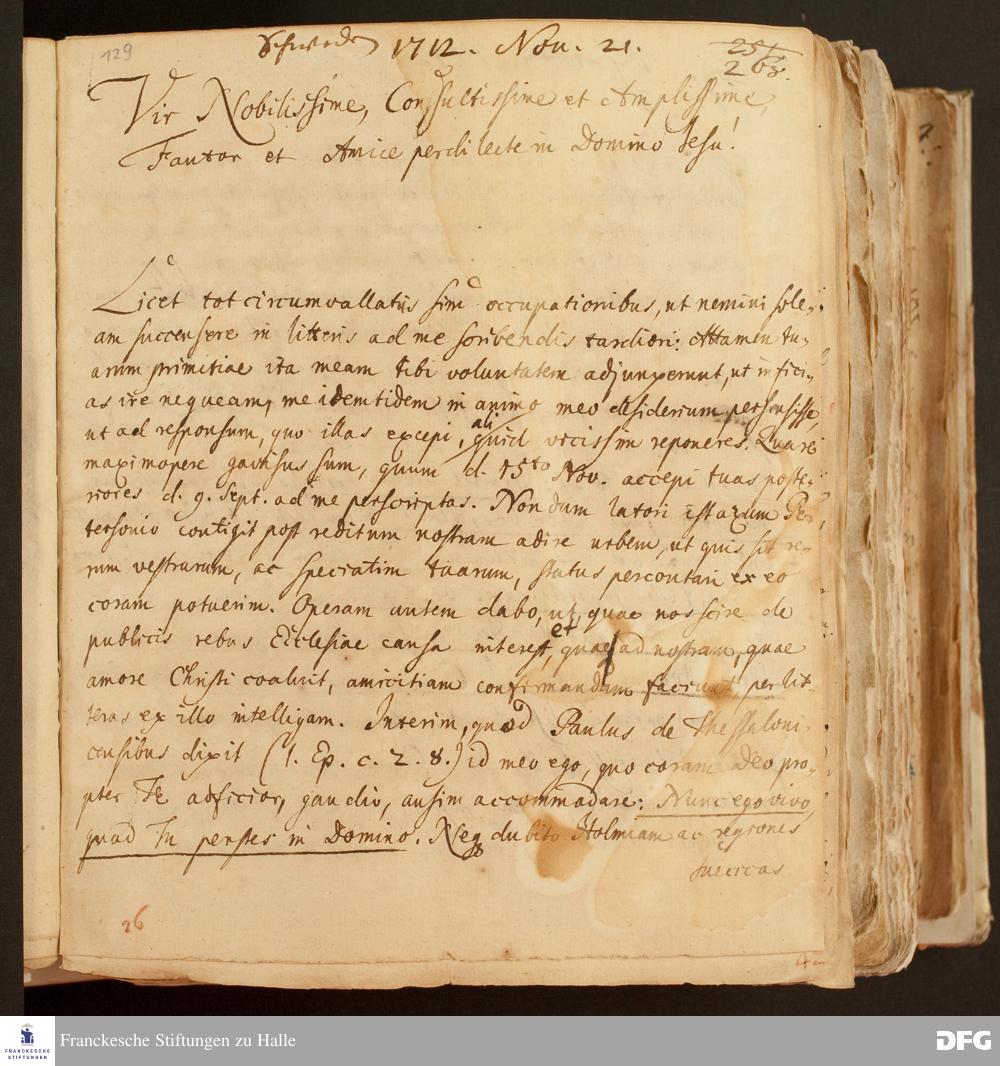 129
Schweden 1712. Nov. 21.
Vir Nobilissime, Consultissime et Amplissime,
Fautor et Amice perdilecte in Domino Jesu!
Licet tot circumvallatus sim occupationibus, ut nemini sole-
am succensere in litteris ad me scribendis tardiori: Attamen tu-
arum primitiae ita meam tibi voluntatem adjunxerunt, ut infici-
as ire nequeam, me identidem in animo meo desiderium persensisse
ut ad responsum, quo illas excepi, aliquid vicissim reponeres. Quare
maximopere gavisus sum, quum d. 15to Nov. accepi tuas poste-
riores d. 9. Sept. ad me perscriptas. Nondum latori istarum Pe-
tersonio contigit post reditum nostram adire urbem, ut quis sit re-
rum vestrarum, ac speciatim tuarum, status percontari ex eo
coram potuerim. Operam autem dabo, ut, quae nos scire de
publicis rebus Ecclesiae causa interest, et quae ad nostram, quae
amore Christi coaluit, amicitiam confirmandam faciunt, per lit-
teras ex illo intelligam. Interim, quod Paulus de Thessaloni-
censibus dixit (1. Ep. c. 2. 8.) id meo ego, quo coram Deo pro-
pter Te adficior, gaudio, ausim accommodare: Nunc ego vivo,
quod Tu perstes in Domino. Neq dubito Holmiam ac regiones
Suecicas
26
FRANCKESCHE STIFTUNGEN
Franckesche Stiftungen zu Halle
DFG